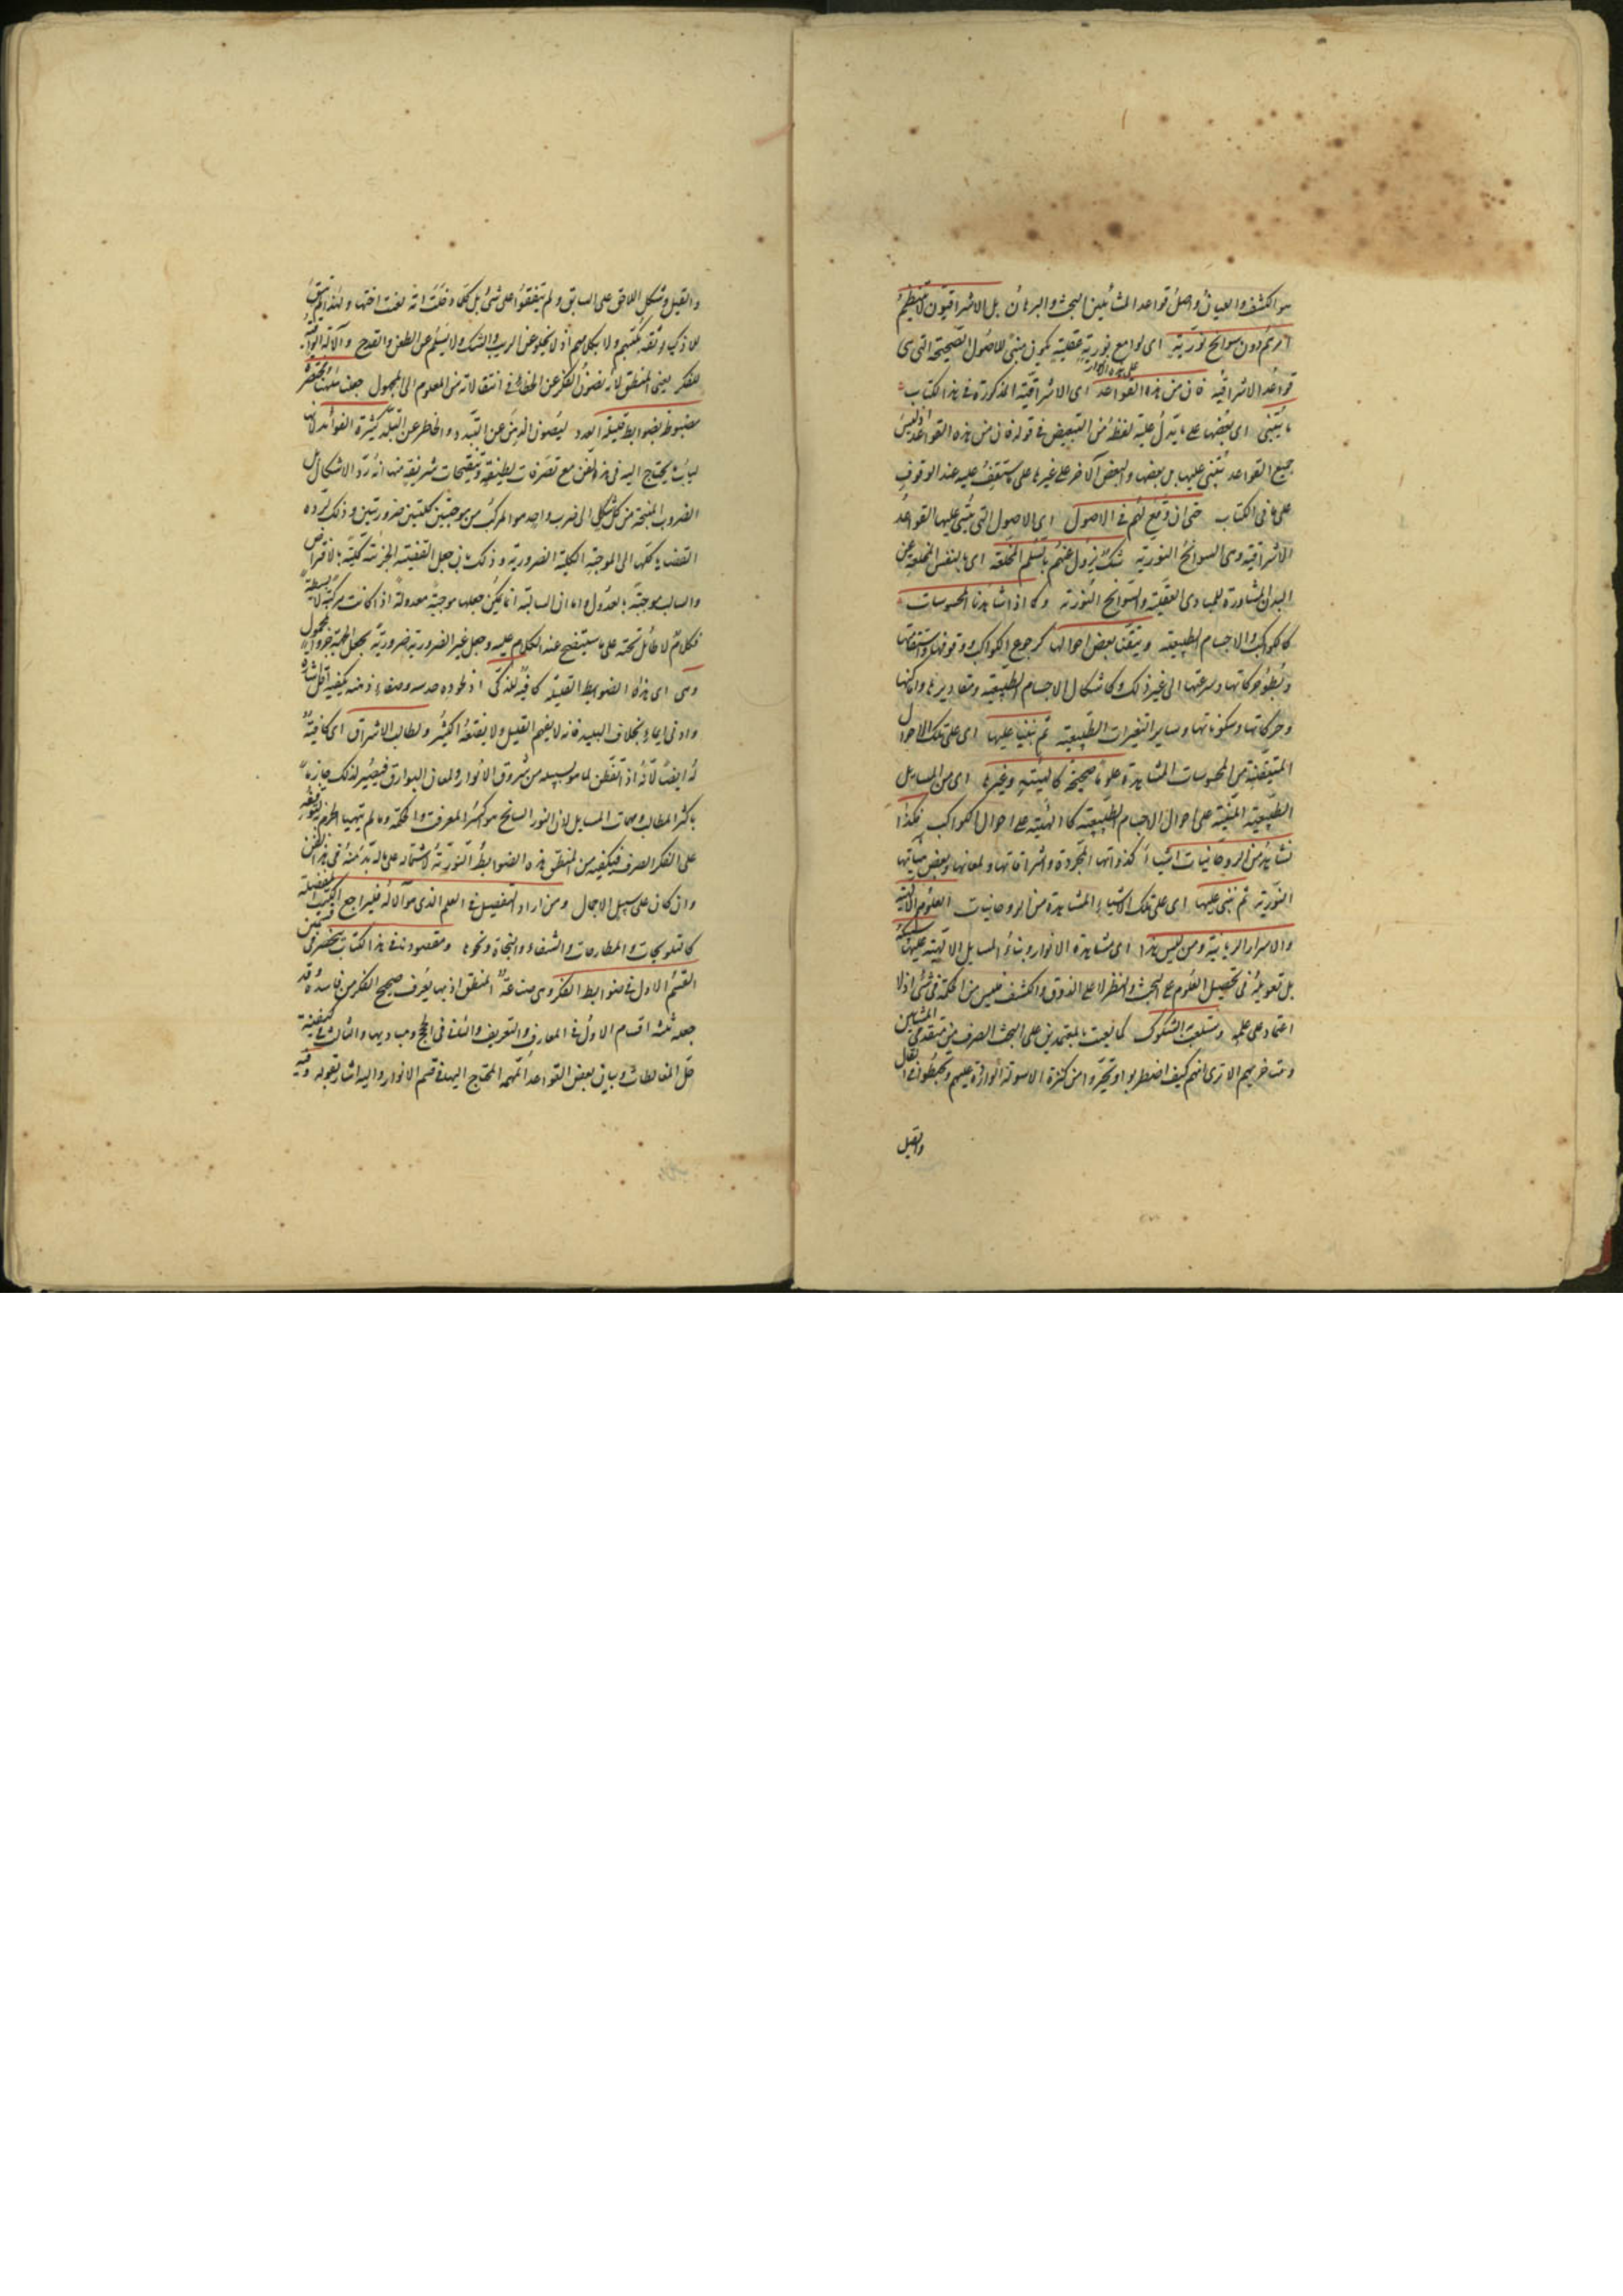 هو الكشف والعيان واصل قواعد المشائين البحث والبرهان بل الاشراقيون لا ينتظم
امرهم دون سوانح نورية اى لوامع نورية عقلية يكون مبنى للاصول الصحيحة التى هى
قواعد الاشراقية فان من هذه القواعد اى الاشراقية المذكورة فى هذا الكتاب
على هذه الانوار
ما يبتنى اى بعضها على ما يدل عليه لفظة من التبعيض فى قوله فان من هذه القواعد اذ ليس
جميع القواعد تبتنى عليها بل بعضها والبعض الآخر على غيرها على ما ستقف عليه عند الوقوف
على ما فى الكتاب حتى ان وقع لهم فى الاصول اى الاصول التى يبتنى عليها القواعد
الاشراقية وهى السوانح النورية شك يزول عنهم بالسلم المخلعة اى بالنفس المخلعة عن
البدن المشاهدة للمبادى العقلية والسوانح النورية وكما انا شاهدنا المحسوسات
كالكواكب والاجسام الطبيعية وتيقنا بعض احوالها كرجوع الكواكب ووقوفها واستقامتها
وبطؤ حركاتها وسرعتها الى غير ذلك وكاشكال الاجسام الطبيعية ومقاديرها واماكنها
وحركاتها وسكوناتها وساير التغيرات الطبيعية ثم بنينا عليها اى على تلك الاحوال
المتيقنة من المحسوسات المشاهدة علوما صحيحة كالهيئة وغيرها اى من المسايل
الطبيعية المبنية على احوال الاجسام الطبيعية كالهيئة على احوال الكواكب فكذا
نشاهد من الروحانيات اشياء كذواتها المجردة واشراقاتها ولمعانها وبعض هيئاتها
النورية ثم نبنى عليها اى على تلك الاشياء المشاهدة من الروحانيات العلوم الالهية
والاسرار الربانية ومن ليس هذا اى مشاهدة الانوار وبناء المسايل الالهية عليها سبيله
بل تعويله فى تحصيل العلوم على البحث والنظر لا على الذوق والكشف فليس من الحكمة فى شئ اذ لا
اعتماد على علمه وستلعب به الشكوك كما لعبت بالمعتمدين على البحث الصرف من متقدمى المشائين
ومتاخريهم الا ترى انهم كيف اضطربوا وتحيروا من كثرة الاسولة الواردة عليهم وتخبطوا فى القال
والقيل
والقيل وتشكل اللاحق على السابق ولم يتفقوا على شئ بل كلما دخلت امة لعنت اختها ولهذا لم يبق
للاذكياء ثقة بكتبهم ولا بكلامهم اذ لا يخلو عن الريب والشك ولا يسلم عن الطعن والقدح والآلة الواقية
للفكر يعنى المنطق لانه يصون الفكر عن الخطأ فى انتقالاته من المعلوم الى المجهول جعلناها مختصرة
مضبوطة بضوابط قليلة العدد ليصون الذهن عن التبدد والخاطر عن التبلد كثيرة الفوائد لانها
لباب ما يحتاج اليه فى هذا الفن مع تصرفات لطيفة وتنقيحات شريفة منها انه رد الاشكال بل
الضروب المنتجة من كل شكل الى ضرب واحد هو المركب من موجبتين كليتين ضروريتين وذلك لرده
القضايا كلها الى الموجبة الكلية الضرورية وذلك بان جعل القضية الجزئية كلية بالافتراض
والسالبة موجبة بالعدول واما ان السالبة انما يمكن جعلها موجبة معدولة اذا كانت مركبة لا بسيطة
فكلام لا طائل تحته على ما سيتضح عند الكلام عليه وجعل غير الضرورية ضرورية بجعل الجهة جزءا للمحمول
وهى اى هذه الضوابط القليلة كافية للذكى اذ لجودة حدسه وصفاء ذهنه يكفيه اقل اشارة
وادنى ايماء بخلاف البليد فانه لا يفهم القليل ولا ينفعه الكثير ولطالب الاشراق اى كافية
له ايضا لانه اذ اتفطن لما هو بسبيله من شروق الانوار ولمعان البوارق فيصير لذلك جازما
باكثر المطالب ومهمات المسايل لان النور السانح هو اكسير المعرفة والحكمة وما لم يتهيا الجزم
على الفكر الصرف فيكفيه من المنطق هذه الضوابط النورية لاشتماله على ما لا بد منه فى هذا الفن
وان كان على سبيل الاجمال ومن اراد التفصيل فى العلم الذى هو آلالة فليراجع الكتب المفصلة
كالتلويحات والمطارحات والشفاء والنجاة ونحوها ومقصودنا فى هذا الكتاب ينحصر فى قسمين
القسم الاول فى ضوابط الفكر وهى صناعة المنطق اذ بها يعرف صحيح الفكر من فاسده قد
جعله ثلثة اقسام الاول فى المعارف والتعريف والثانى فى الحجج ومباديها والثالث فى كيفية
حل المغالطات وبيان بعض القواعد المهمة المحتاج اليها فى قسم الانوار واليه اشار بقوله وفيه